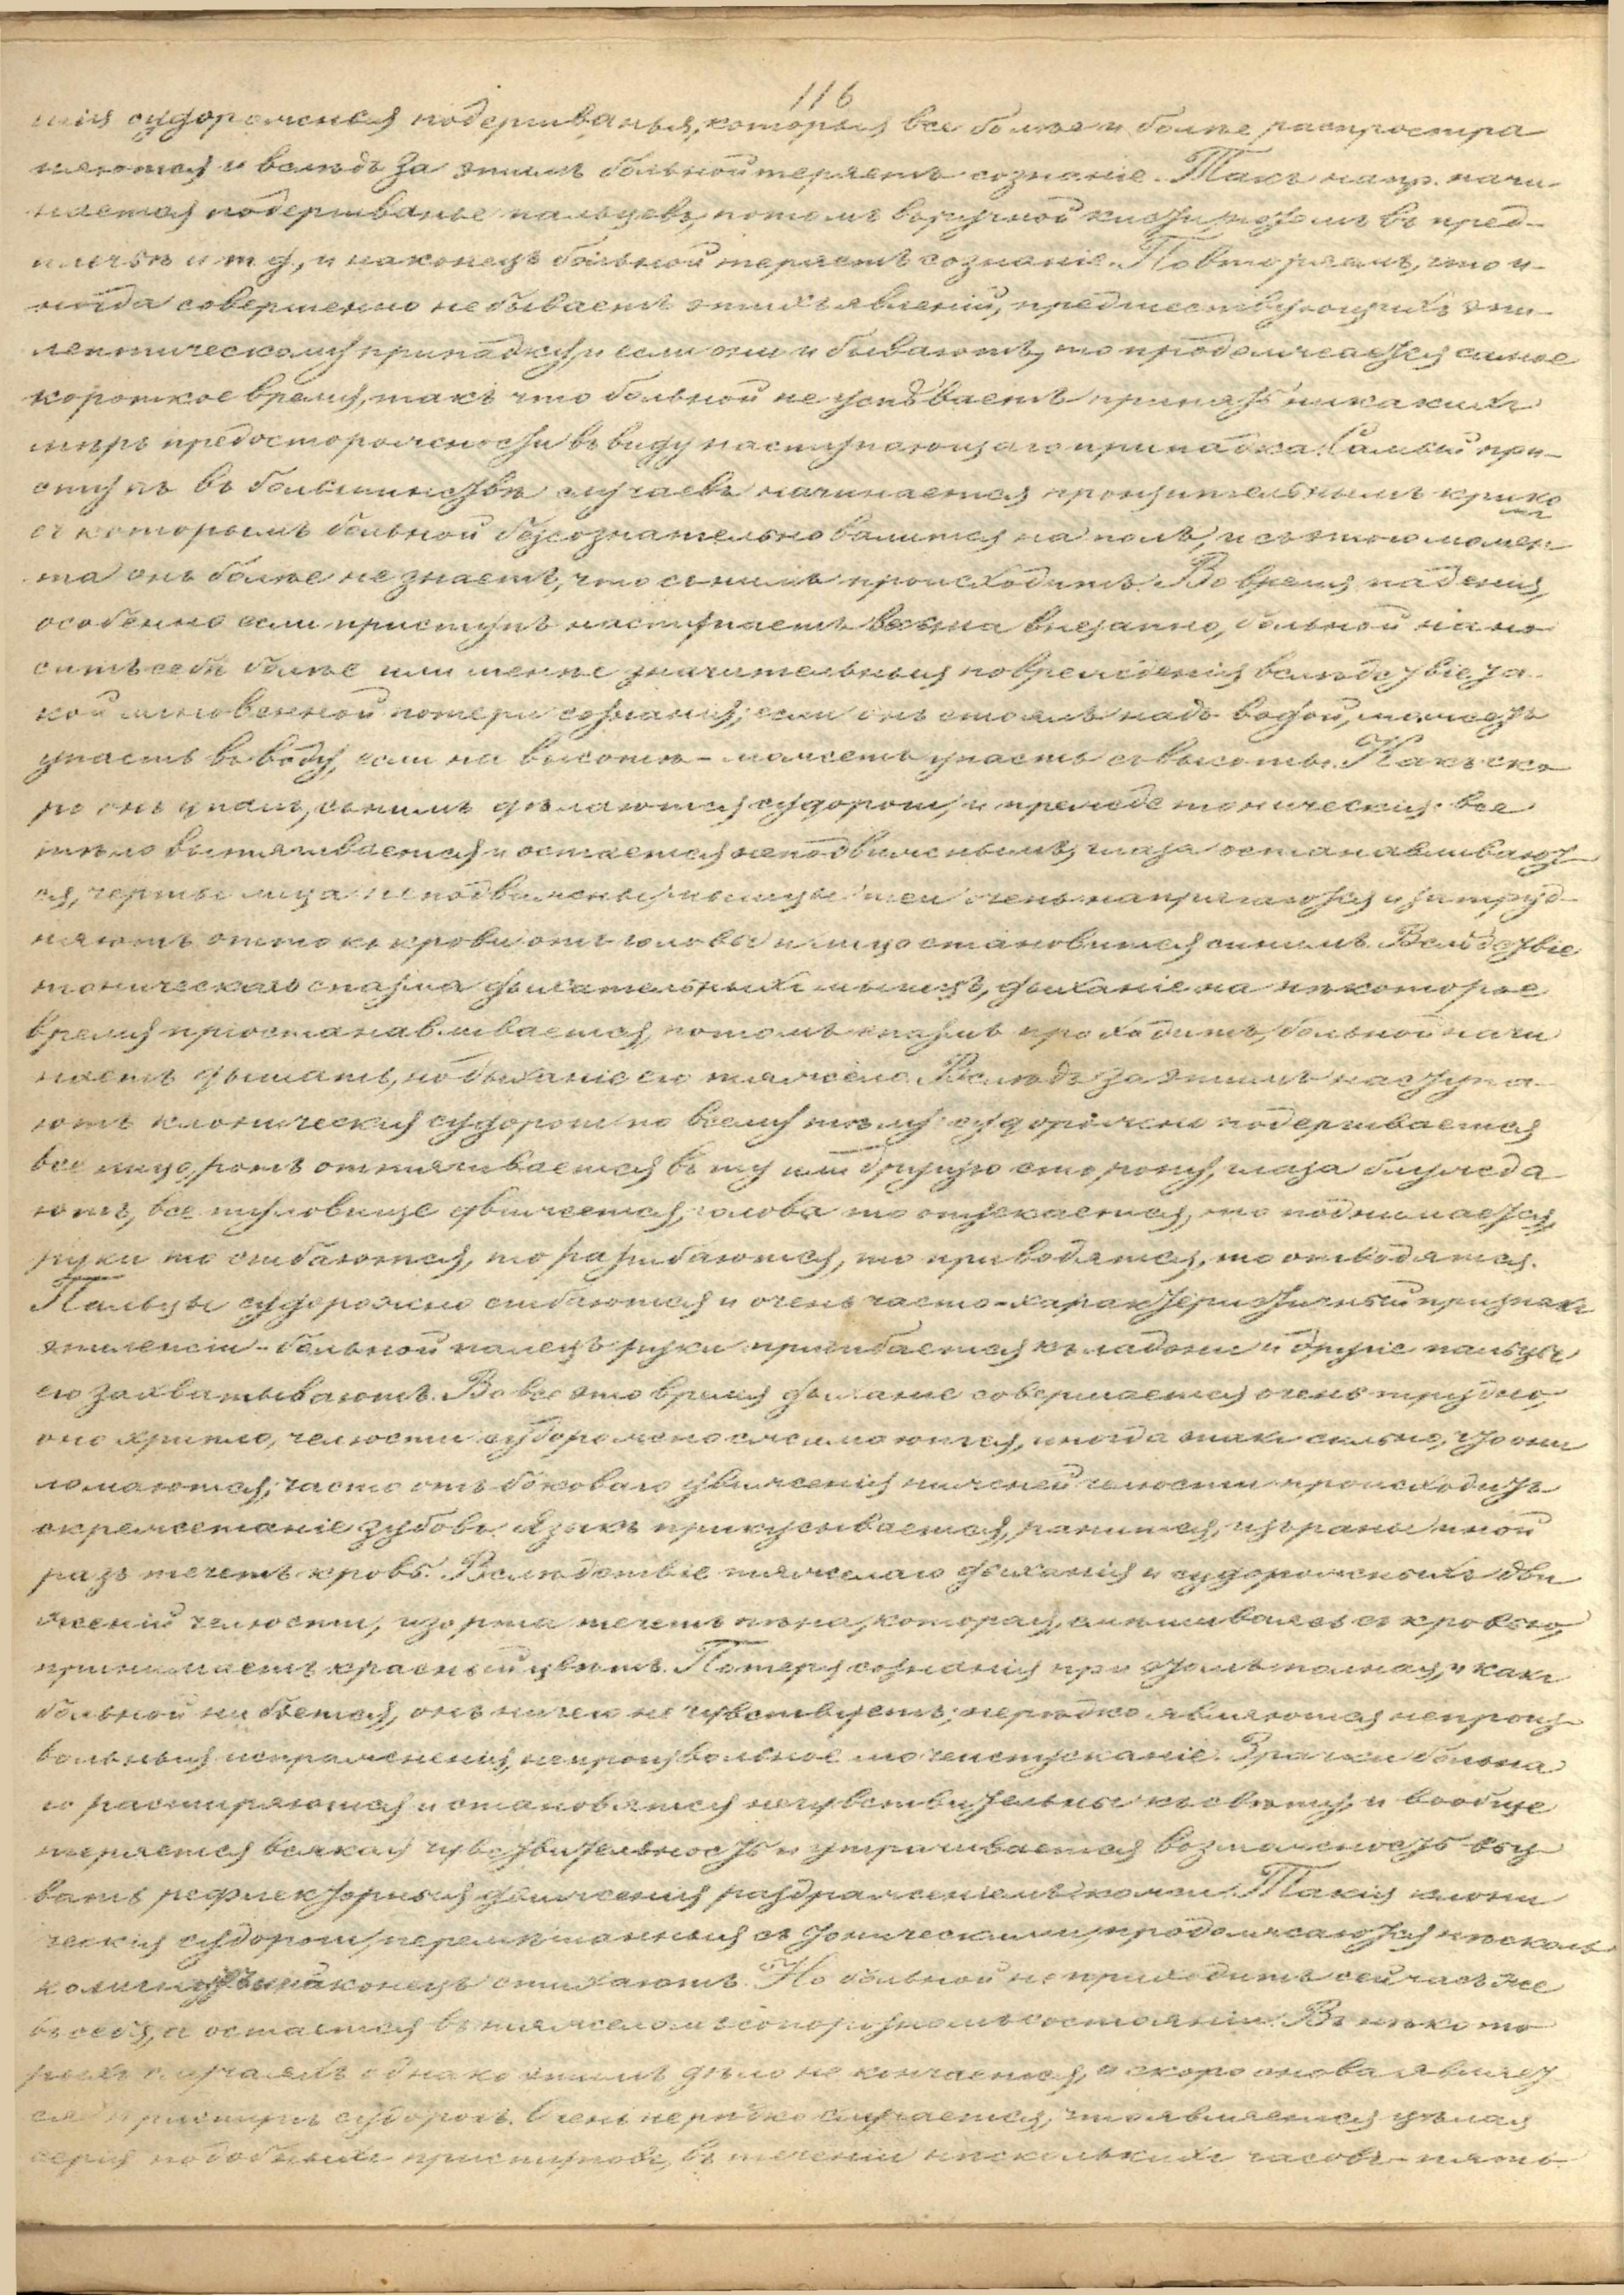 116
шія судорожныя подергиванья, которыя все болѣе и болѣе распростра
няются и вслѣдъ за этимъ больной теряетъ сознаніе. Такъ напр. начи-
нается подергиванье пальцевъ, потомъ въ ручной кисти, потомъ въ пред-
плечьѣ и т д., и наконецъ больной теряетъ сознаніе. Повторяемъ, что и-
ногда совершенно не бываетъ этихъ явленій, предшествующихъ эпи-
лептическому припадку, и если они и бываютъ, то продолжается самое
короткое время, такъ что больной не успѣваетъ принять никакихъ
мѣръ предосторожности въ виду наступающаго припадка. Самый при-
ступъ въ большинствѣ случаевъ начинается пронзительнымъ крико
мъ
съ которымъ больной безсознательно валится на полъ, и съ этого момен
та онъ болѣе не знаетъ, что съ нимъ происходитъ. Во время паденія,
особенно если приступъ наступаетъ весьма внезапно, больной нано
ситъ себѣ болѣе или менѣе значительныя поврежденія вслѣдствіе та-
кой мгновенной потери сознанія; если онъ стоялъ надъ водой, можетъ
упасть въ воду, если на высотѣ - можетъ упасть съ высоты. Какъ ско
ро онъ упалъ, съ нимъ дѣлаются судороги, и прежде тоническія: все
тѣло вытягивается и остается неподвижнымъ, глаза останавливают-
ся, черты лица неподвижны, мышцы шеи очень напрягаются и затруд-
няютъ оттокъ крови отъ головы и лицо становится синимъ. Вслѣдствіе
тоническаго спазма дыхательныхъ мышцъ, дыханіе на нѣкоторое
время пріостанавливается, потомъ спазмъ проходитъ, больной начи
наетъ дышать, но дыханіе его тяжело. Вслѣдъ за этимъ наступа-
ютъ клоническія судороги по всему тѣлу: судорожно подергивается
все лицо, ротъ оттягивается въ ту или другую сторону, глаза блужда
ютъ, все туловище движется, голова то опускается, то поднимается,
руки то сгибаются, то разгибаются, то приводятся, то отводятся.
Пальцы судорожно сгибаются и очень часто - характеристичный признакъ
эпилепсіи - большой палецъ руки пригибается къ ладони и другіе пальцы
его захватываютъ. Во все это время дыханіе совершается очень трудно,
оно хрипло, челюсти судорожно сжимаются, иногда такъ сильно, что они
ломаются; часто отъ боковаго движенія нижней челюсти происходитъ
скрежетаніе зубовъ. Языкъ прикусывается, ранится, изъ раны иной
разъ течетъ кровь. Вслѣдствіе тяжелаго дыханія и судорожныхъ дви
женій челюсти, изо рта течетъ пѣна, которая, смѣшиваясь съ кровью,
принимаетъ красный цвѣтъ. Потеря сознанія при этомъ полная, и какъ
больной ни бьется, онъ ничего не чувствуетъ; нерѣдко являются непроиз-
вольныя испражненія, непроизвольное мочеиспусканіе. Зрачки больна
го расширяются и становятся нечувствительны къ свѣту, и вообще
теряется всякая чувствительность и утрачивается возможность выз
вать рефлекторныя движенія раздраженіемъ кожи. Такія клони
ческія судороги, перемѣшанныя съ тоническими, продолжаются нѣсколь
ко минутъ и наконецъ стихаютъ. Но больной не приходитъ сейчасъ же
въ себя, а остается въ тяжеломъ сопорозномъ состояніи. Въ нѣкото
рыхъ случаяхъ однако этимъ дѣло не кончается, а скоро снова являет
ся приступъ судорогъ. Очень нерѣдко случается, что является цѣлая
серія подобныхъ приступовъ, въ теченіи нѣсколькихъ часовъ - пять